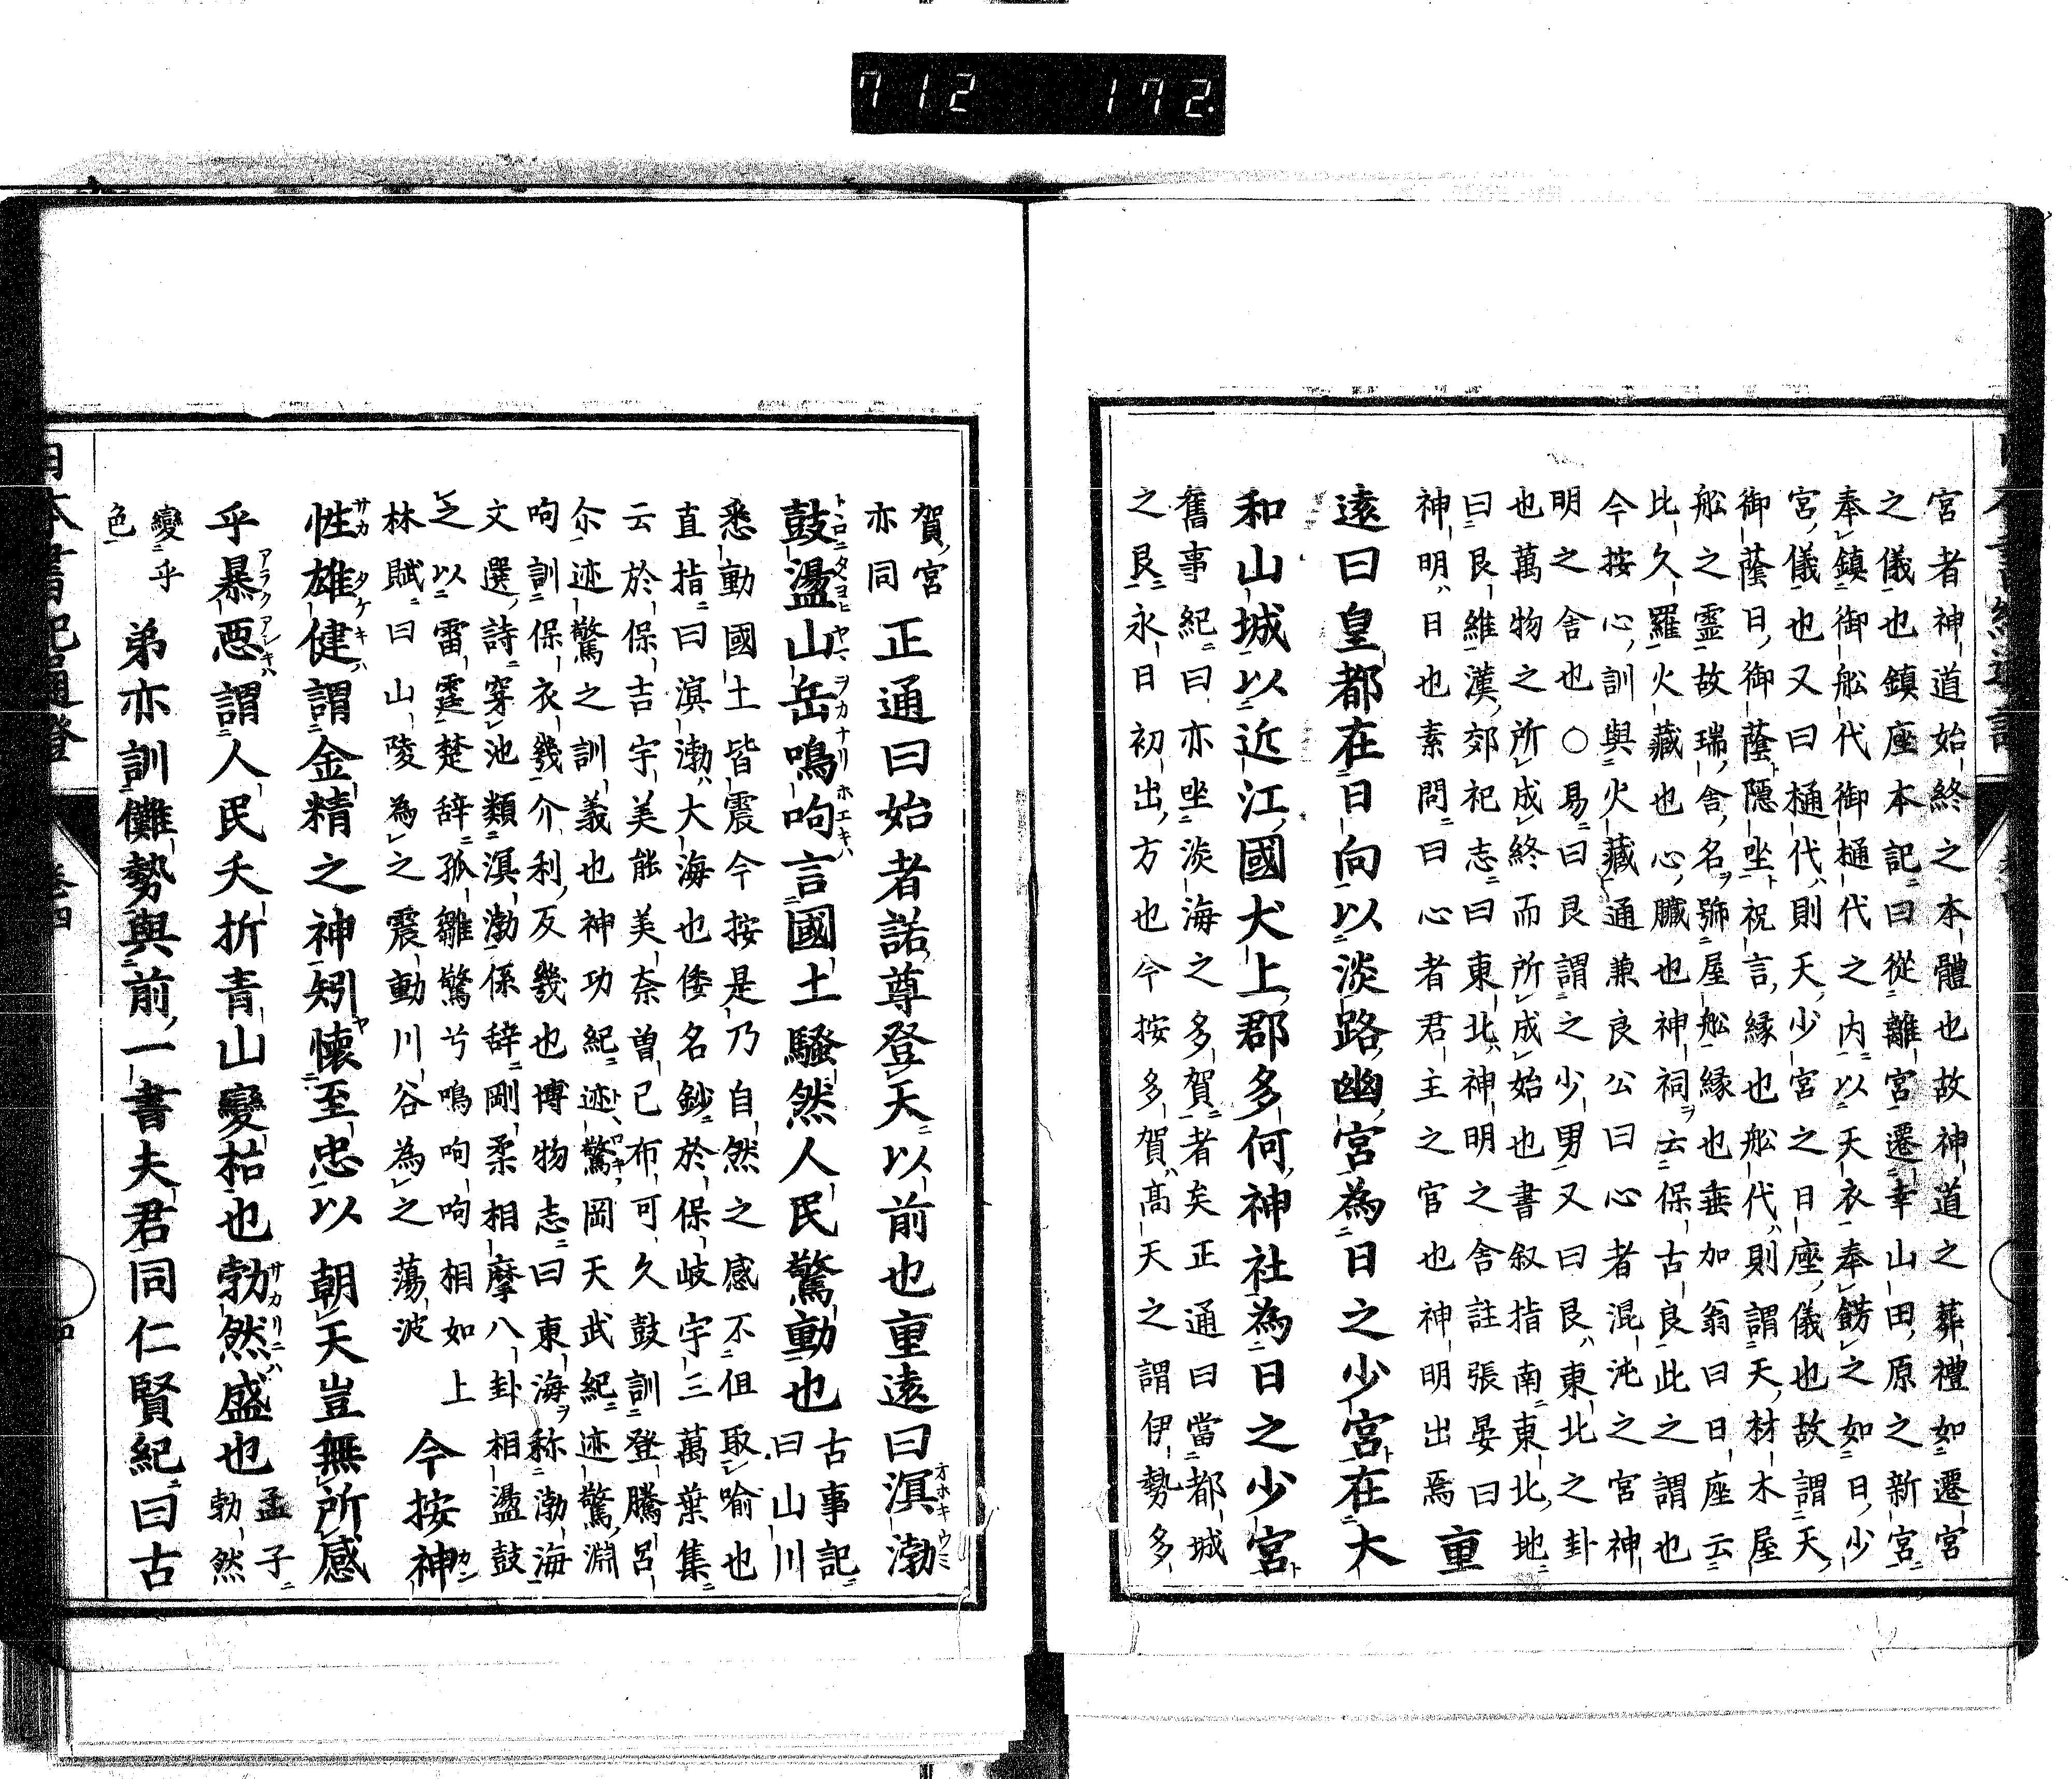 712 172.
宮者神道始終之本體也故神道之葬禮如遷宮
之儀也鎮座本記曰從離宮遷幸山田原之新宮
奉鎮御船代御樋代之内以天衣奉餝之如日少
宮儀也又曰樋代則天少宮之日座儀也故謂天
御蔭日御蔭隠坐祝言縁也船代則謂天材木屋
船之霊故瑞舎名号屋船縁也垂加翁曰日座云
比久羅火藏也心臓也神祠云保古良此之謂也
今按心訓與火藏通兼良公曰心者混沌之宮神
明之舎也○易曰艮謂之少男又曰艮東北之卦
也萬物之所成終而所成始也書叙指南東北地
曰艮維漢郊祀志曰東北神明之舎註張晏曰
神明日也素問曰心者君主之官也神明出焉 重
遠曰皇都在日向以淡路幽宮為日之少宮在大
和山城以近江國犬上郡多何神社為日之少宮
舊事紀曰亦坐淡海之多賀者矣正通曰當都城
之艮永日初出方也今按多賀高天之謂伊勢多
賀宮
亦同 正通曰始者諾尊登天以前也重遠曰溟渤
鼓盪山岳鳴呴言國土騒然人民驚動也 古事記
曰山川
悉動國土皆震今按是乃自然之感不但取喻也
直指曰溟渤大海也倭名鈔於保岐宇三萬葉集
云於保吉宇美能美奈曽已布可久鼓訓登騰呂
尒迹驚之訓義也神功紀迹驚岡天武紀迹驚淵
呴訓保衣幾介利反幾也博物志曰東海称渤海
文選詩穿池類溟渤係辞剛柔相摩八卦相盪鼓
之以雷霆楚辞孤雛驚兮鳴呴呴相如上
林賦曰山陵為之震動川谷為之蕩波 今按神
性雄健謂金精之神矧懐至忠以朝天豈無所感
乎暴悪謂人民夭折青山變枯也勃然盛也 孟子
勃然
變乎
色 弟亦訓儺勢與前一書夫君同仁賢紀曰古